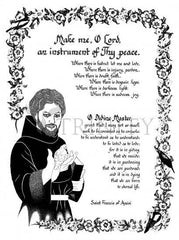 Make me, O Lord,
an instrument of Thy peace.
Where there is hatred let me sow love,
Where there is injury, pardon,
Where there is doubt, faith,
Where there is despair, hope,
Where there is darkness, light,
Where there is sadness, joy.
O Divine Master,
grant that I may not so much
seek to be consoled as to console,
to be understood as to understand,
to be loved as to love;
for it is in giving
that we receive;
it is in pardoning
that we are pardoned;
and it is in dying
that we are born
to eternal life.
Saint Francis of Assisi